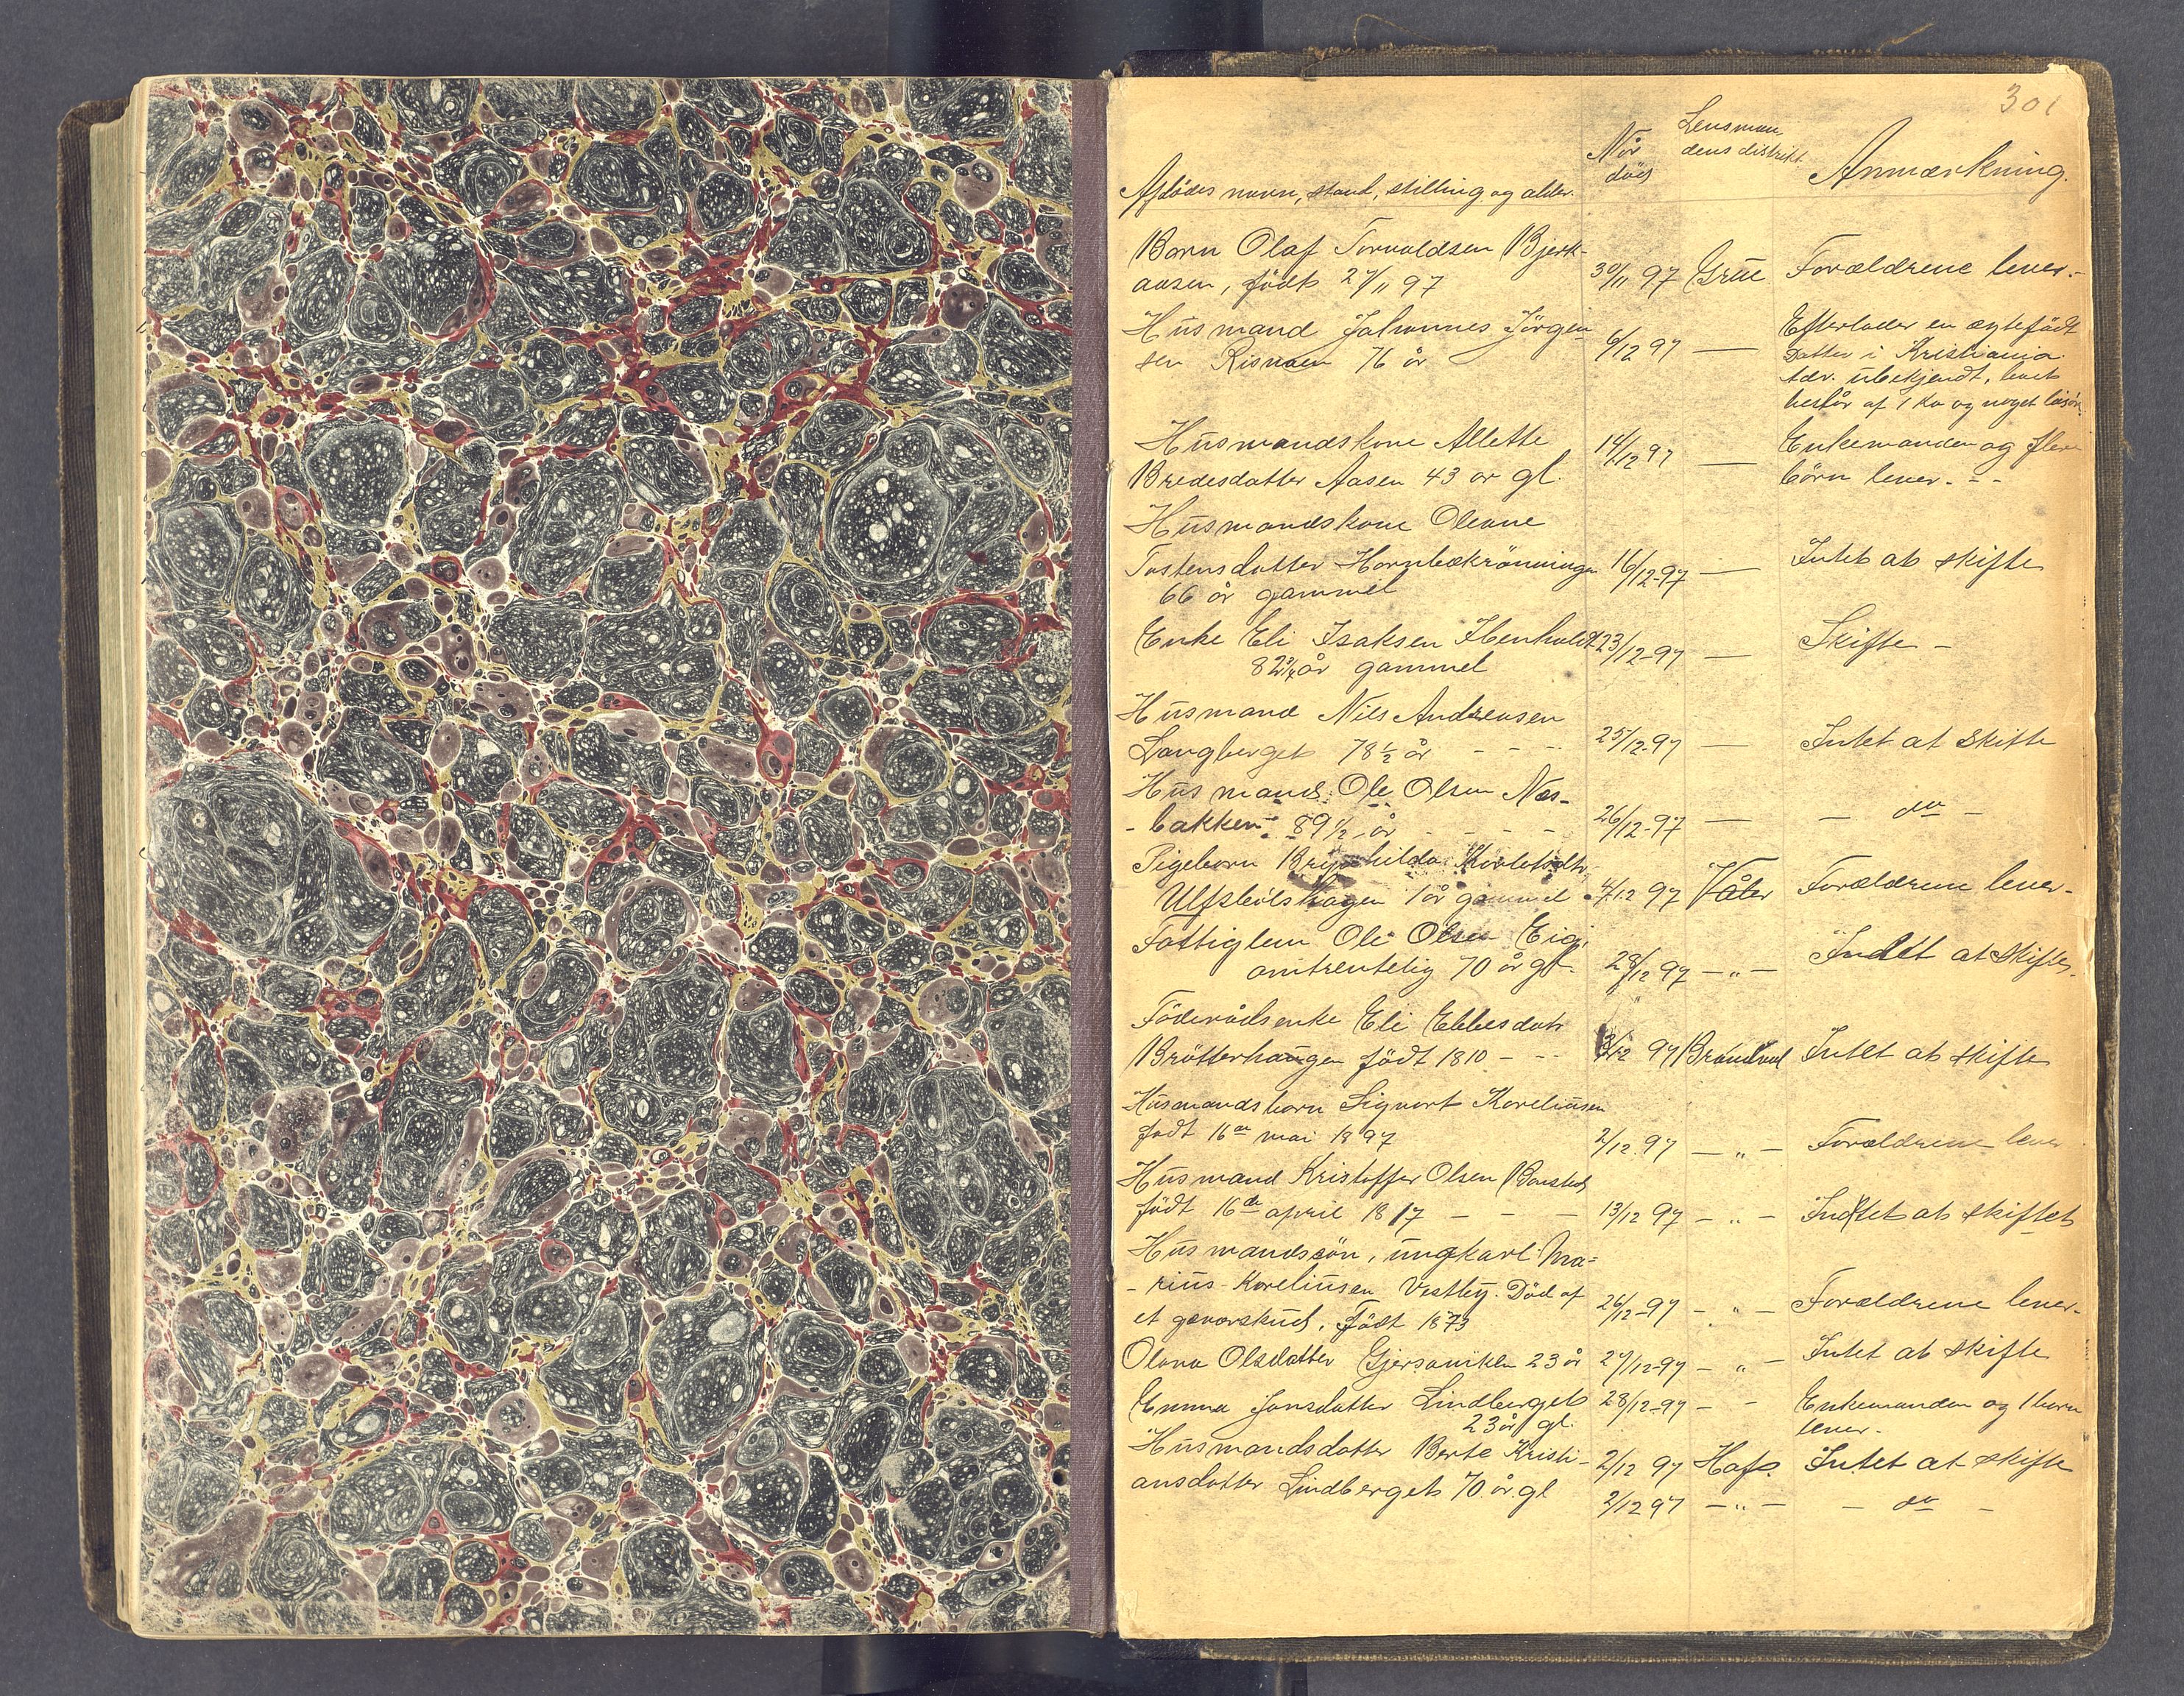 301
Afdødes navn, stand, stilling og alder.
Når
død
Lensman
dens distrikt
Anmærkning.
Barn Olaf Torvaldsen Bjerk-
aasen, født 27/11 97
30/11 97 Grue Forældrene lever.-
Husmand Johannes Jörgen-
sen Rismoen 76 år
6/12 97 —
Efterlader en ægtefødt
Datter i Kristiania
adr. ubekjendt, boet
består af 1 ko og noget løsøre.
Husmandskone Allette
Bredesdatter Aasen 43 år gl.
14/12 97 —
Enkemanden og flere
börn lever. - -
Husmandskone Oleane
Tostensdatter Hornbækrönningen
66 år gammel
16/12-97 — Intet at skifte
Enke Eli Isaksen Ibenholdt
år gammel
23/12-97 — Skifte -
Husmand Nils Andreasen
Langberget 78 ½ år - - -
25/12-97 — Intet at skifte
Husmand Ole Olsen Næs-
- bakken 89 ½ år - - - -
26/12-97 — — do -
Pigebarn
Ulfsbölshagen 1 år gammel
4/12 97 Våler Forældrene lever-
Fattiglem Ole Olsen Eig,
omtrentelig 70 år gl.
28/12 97 — „ — Indet at Skiftes.
Föderådsenke Eli Ebbesdatr
Brötterhaugen født 1810 - - -
/12 97 Brandval Intet at skifte
Husmandsbarn Sigvart Koreliusen
født 16de mai 1897
2/12 97 — „ — Forældrene lever
Husmand Kristoffer Olsen
født 16de april 1817 — — —
13/12 97 — „ — Indtet at skiftet
Husmandssön, ungkarl Ma-
- rius Koreliusen Vestby. Död af
et geværskud. Født 1873
26/12-97 — „ — Forældrene lever-
Olava Olsdatter 23 år
27/12-97 — „ — Intet at skifte
Emma Jonsdatter Lindberget
23 år gl.
28/12-97 - - Enkemanden og 1 barn
lever.
Husmandsdatter Berte Kristi-
ansdatter Lindberget 70 år gl
2/12 97 Hof. Intet at skifte
2/12 97 — „ — — do -